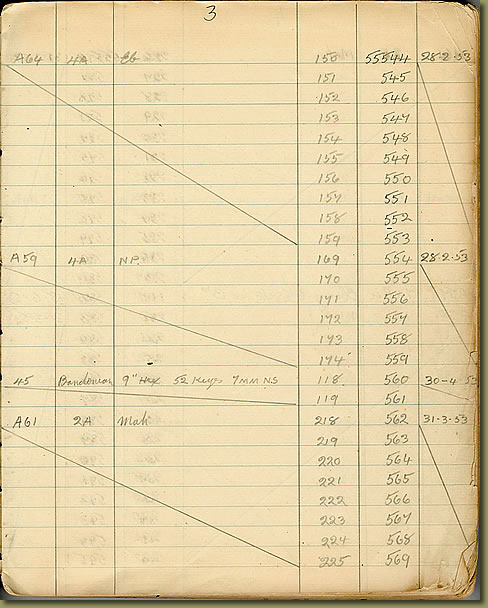 3
A64 4A Eb 150 55544 28-2-53
151 545
152 546
153 547
154 548
155 549
156 550
157 551
158 552
159 553
A59 4A N.P. 169 554 28-2-53
170 555
171 556
172 557
173 558
174 559
45 Bandonian 9" Hex 52 Keys 7MM NS 118 560 30-4-53
119 561
A61 2A Mah 218 562 31-3-53
219 563
220 564
221 565
222 566
223 567
224 568
225 569